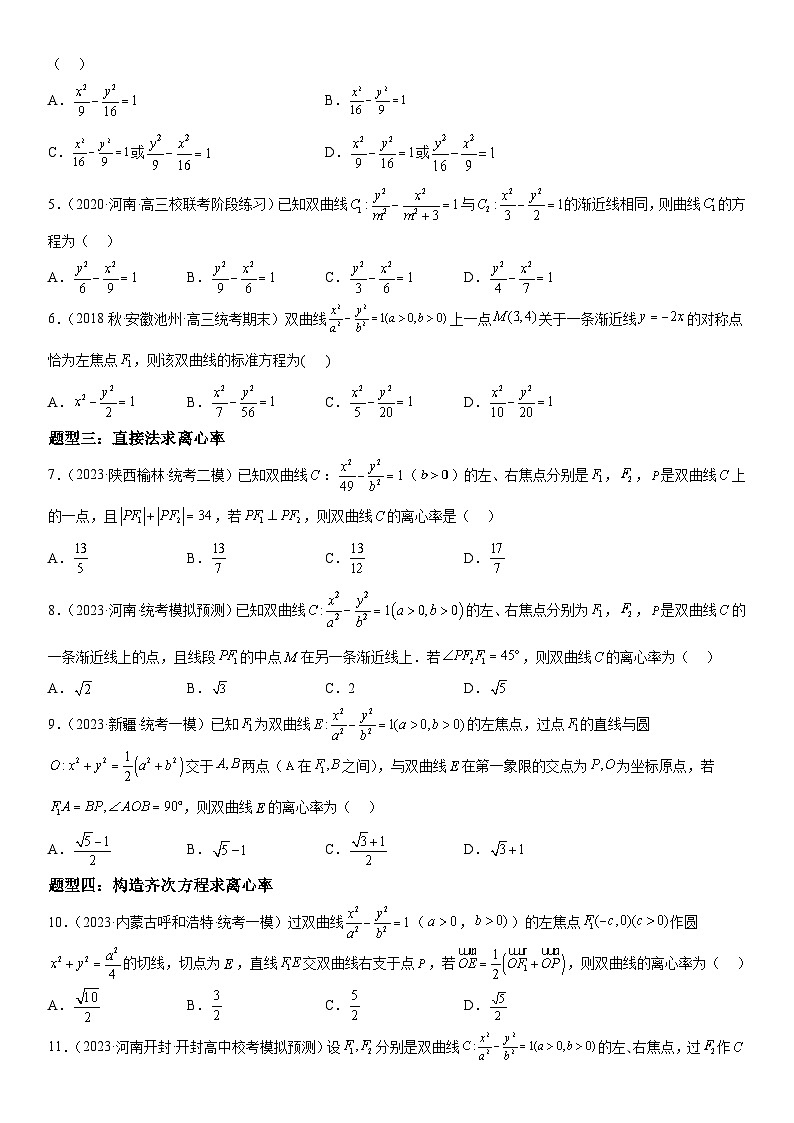 （    ）
A. x²/9 − y²/16 = 1    B. x²/16 − y²/9 = 1
C. x²/16 − y²/9 = 1或y²/9 − x²/16 = 1    D. x²/9 − y²/16 = 1或y²/16 − x²/9 = 1
5.（2020·河南·高三校联考阶段练习）已知双曲线C₁：y²/m² − x²/(m²+3) = 1与C₂：x²/3 − y²/2 = 1的渐近线相同，则曲线C₁的方
程为（    ）
A. y²/6 − x²/9 = 1    B. y²/9 − x²/6 = 1    C. y²/3 − x²/6 = 1    D. y²/4 − x²/7 = 1
6.（2018秋·安徽池州·高三统考期末）双曲线x²/a² − y²/b² = 1(a > 0, b > 0)上一点M(3,4)关于一条渐近线y = −2x的对称点
恰为左焦点F₁，则该双曲线的标准方程为(    )
A. x² − y²/2 = 1    B. x²/7 − y²/56 = 1    C. x²/5 − y²/20 = 1    D. x²/10 − y²/20 = 1
题型三：直接法求离心率
7.（2023·陕西榆林·统考二模）已知双曲线C：x²/49 − y²/b² = 1（b > 0）的左、右焦点分别是F₁，F₂，P是双曲线C上
的一点，且|PF₁| + |PF₂| = 34，若PF₁ ⊥ PF₂，则双曲线C的离心率是（    ）
A. 13/5    B. 13/7    C. 13/12    D. 17/7
8.（2023·河南·统考模拟预测）已知双曲线C: x²/a² − y²/b² = 1(a > 0, b > 0)的左、右焦点分别为F₁，F₂，P是双曲线C的
一条渐近线上的点，且线段PF₁的中点M在另一条渐近线上．若∠PF₂F₁ = 45°，则双曲线C的离心率为（    ）
A. √2    B. √3    C. 2    D. √5
9.（2023·新疆·统考一模）已知F₁为双曲线E: x²/a² − y²/b² = 1(a > 0, b > 0)的左焦点，过点F₁的直线与圆
O: x² + y² = 1/2(a² + b²)交于A, B两点（A在F₁, B之间），与双曲线E在第一象限的交点为P, O为坐标原点，若
F₁A = BP, ∠AOB = 90°，则双曲线E的离心率为（    ）
A. (√5 − 1)/2    B. √5 − 1    C. (√3 + 1)/2    D. √3 + 1
题型四：构造齐次方程求离心率
10.（2023·内蒙古呼和浩特·统考一模）过双曲线x²/a² − y²/b² = 1（a > 0，b > 0)）的左焦点F₁(−c,0)(c > 0)作圆
x² + y² = a²/4的切线，切点为E，直线F₁E交双曲线右支于点P，若OE = 1/2(OF₁ + OP)，则双曲线的离心率为（    ）
A. √10/2    B. 3/2    C. 5/2    D. √5/2
11.（2023·河南开封·开封高中校考模拟预测）设F₁, F₂分别是双曲线C: x²/a² − y²/b² = 1(a > 0, b > 0)的左、右焦点，过F₂作C